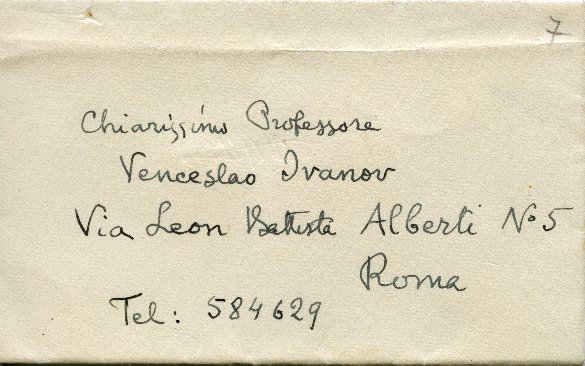 7
Chiarissimo Professore
Venceslao Ivanov
Via Leon Battista Alberti No 5
Roma
Tel: 584629